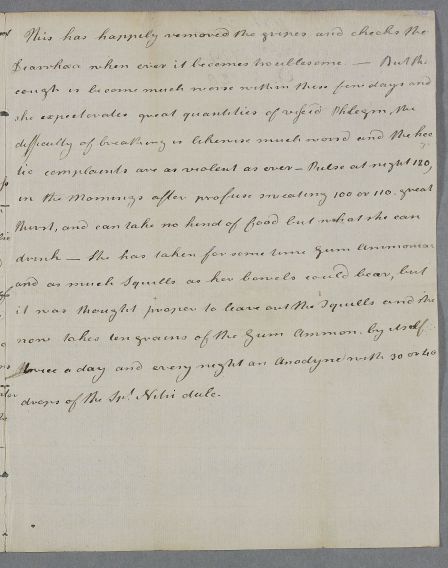 This has happily removed the gripes and checks the
Diarrhœa when ever it becomes troublesome. — But the
cough is become much worse within these few days and
she expectorates great quantities of viscid Phlegm, the
difficulty of breathing is likewise much worse and the hec
tic complaints are as violent as ever — Pulse at night 120,
in the Mornings after profuse sweating 100 or 110. great
thirst, and can take no kind of food but what she can
drink — She has taken for some time Gum Ammoniac
and as much Squills as her bowels could bear, but
it was thought proper to leave out the Squills and she
now takes ten grains of the Gum Ammon. by itself
twice a day and every night an anodyne with 30 or 40
drops of the Spt. Nitri dulc.